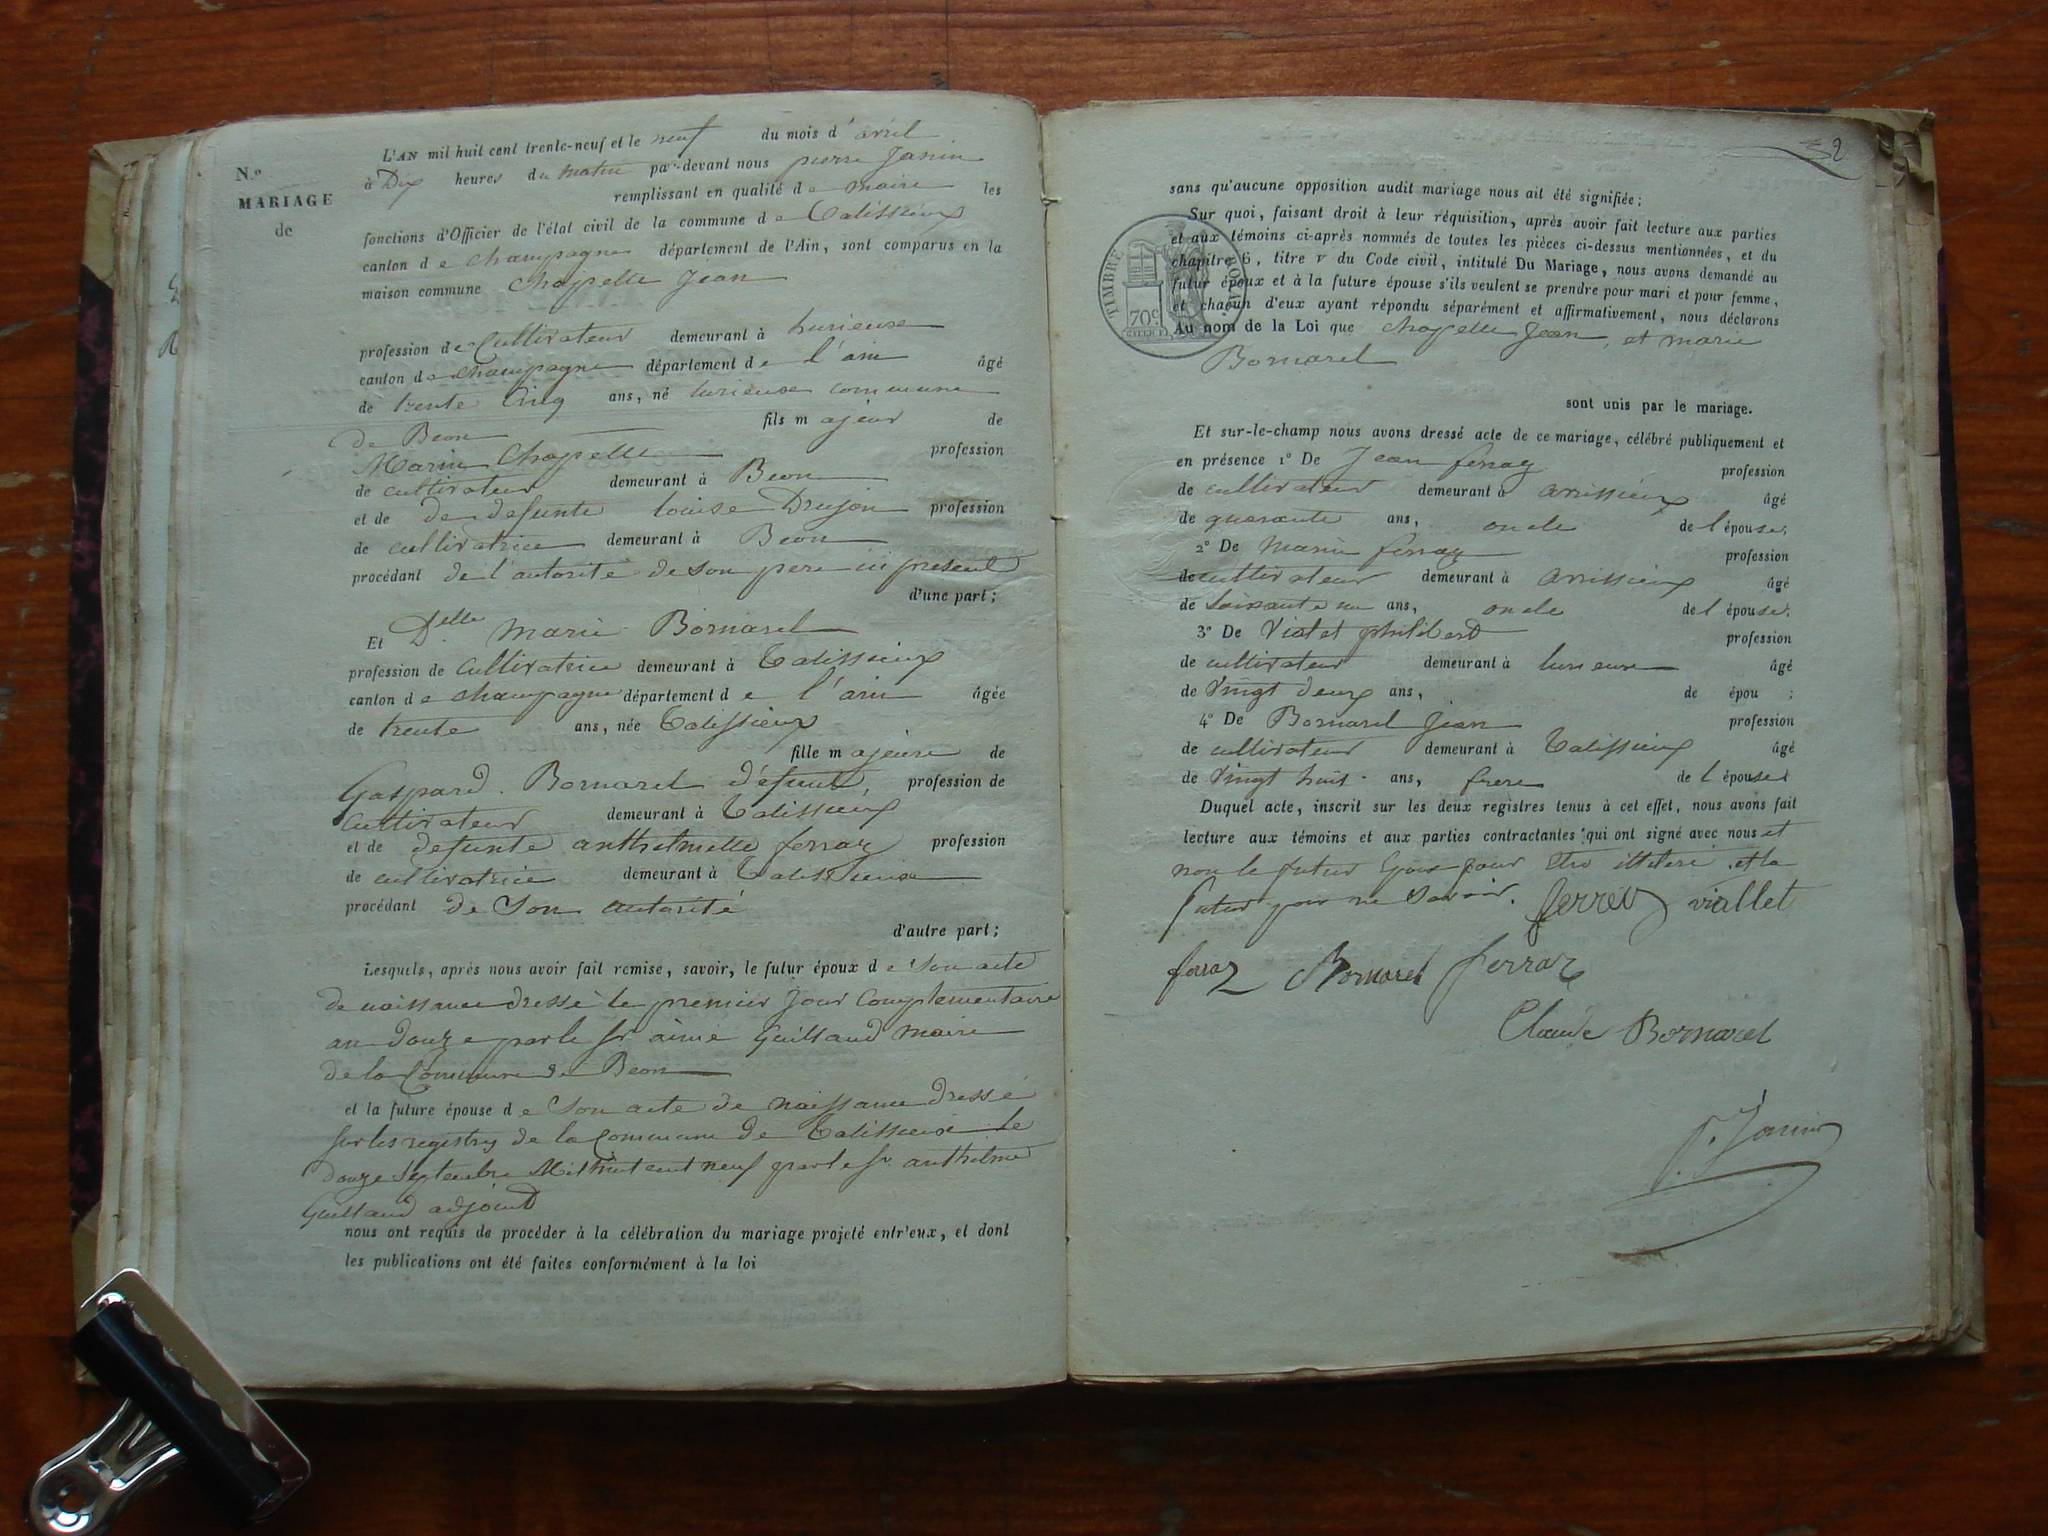 N.º
MARIAGE
de
L'AN mil huit cent trente-neuf et le neuf du mois d'avril
à Dix heures du matin par-devant nous pierre Janin
remplissant en qualité de maire les
fonctions d'Officier de l'état civil de la commune de Talissieux
canton de champagne département de l'Ain, sont comparus en la
maison commune Chapelle Jean
profession de Cultivateur demeurant à lurieuse
canton de champagne département de l'ain âgé
de trente Cinq ans, né lurieuse commune
de Beon fils majeur de
Marin Chapelle profession
de cultivateur demeurant à Beon
et de de defunte louise Drujon profession
de cultivatrice demeurant à Beon
procédant de l'autorité de son pere ici present
d'une part;
Et Delle marie Bornarel
profession de cultivatrice demeurant à Talissieux
canton de champagne département de l'ain âgée
de trente ans, née Talissieux
fille majeure de
Gaspard Bornarel défunt, profession de
Cultivateur demeurant à Talissieux
et de defunte anthelmette ferraz profession
de cultivatrice demeurant à Talissieux
procédant de son autorité
d'autre part;
Lesquels, après nous avoir fait remise, savoir, le futur époux de son acte
de naissance dressé le premier Jour Complementaire
an Douze par le sr aimé Guilland maire
de la Commune de Beon
et la future épouse de son acte de naissance dressé
sur les registres de la Commune de Talissieux le
douze septembre Mil huit cent neuf par le sr anthelme
Guilland adjoint
nous ont requis de procéder à la célébration du mariage projeté entr'eux, et dont
les publications ont été faites conformément à la loi
2
sans qu'aucune opposition audit mariage nous ait été signifiée;
Sur quoi, faisant droit à leur réquisition, après avoir fait lecture aux parties
et aux témoins ci-après nommés de toutes les pièces ci-dessus mentionnées, et du
chapitre 6, titre v du Code civil, intitulé Du Mariage, nous avons demandé au
futur époux et à la future épouse s'ils veulent se prendre pour mari et pour femme,
et chacun d'eux ayant répondu séparément et affirmativement, nous déclarons
Au nom de la Loi que chapelle Jean, et marie
Bornarel
TIMBRE ROYAL
70c
sont unis par le mariage.
Et sur-le-champ nous avons dressé acte de ce mariage, célébré publiquement et
en présence 1º De Jean ferraz profession
de cultivateur demeurant à arvissieux âgé
de quarante ans, oncle de l'épouse;
2º De Marin ferraz profession
de cultivateur demeurant à arvissieux âgé
de soixante un ans, oncle de l'épouse;
3º De Violet philibert profession
de cultivateur demeurant à lurieuse âgé
de Vingt deux ans, de épou ;
4º De Bornarel Jean profession
de cultivateur demeurant à Talissieux âgé
de Vingt huit ans, frere de l'épouse
Duquel acte, inscrit sur les deux registres tenus à cet effet, nous avons fait
lecture aux témoins et aux parties contractantes qui ont signé avec nous et
non le futur Epoux pour etre illiteré et la
futur pour ne savoir. ferrey viallet
ferraz Bornarel ferraz
Claude Bornarel
P. Janin